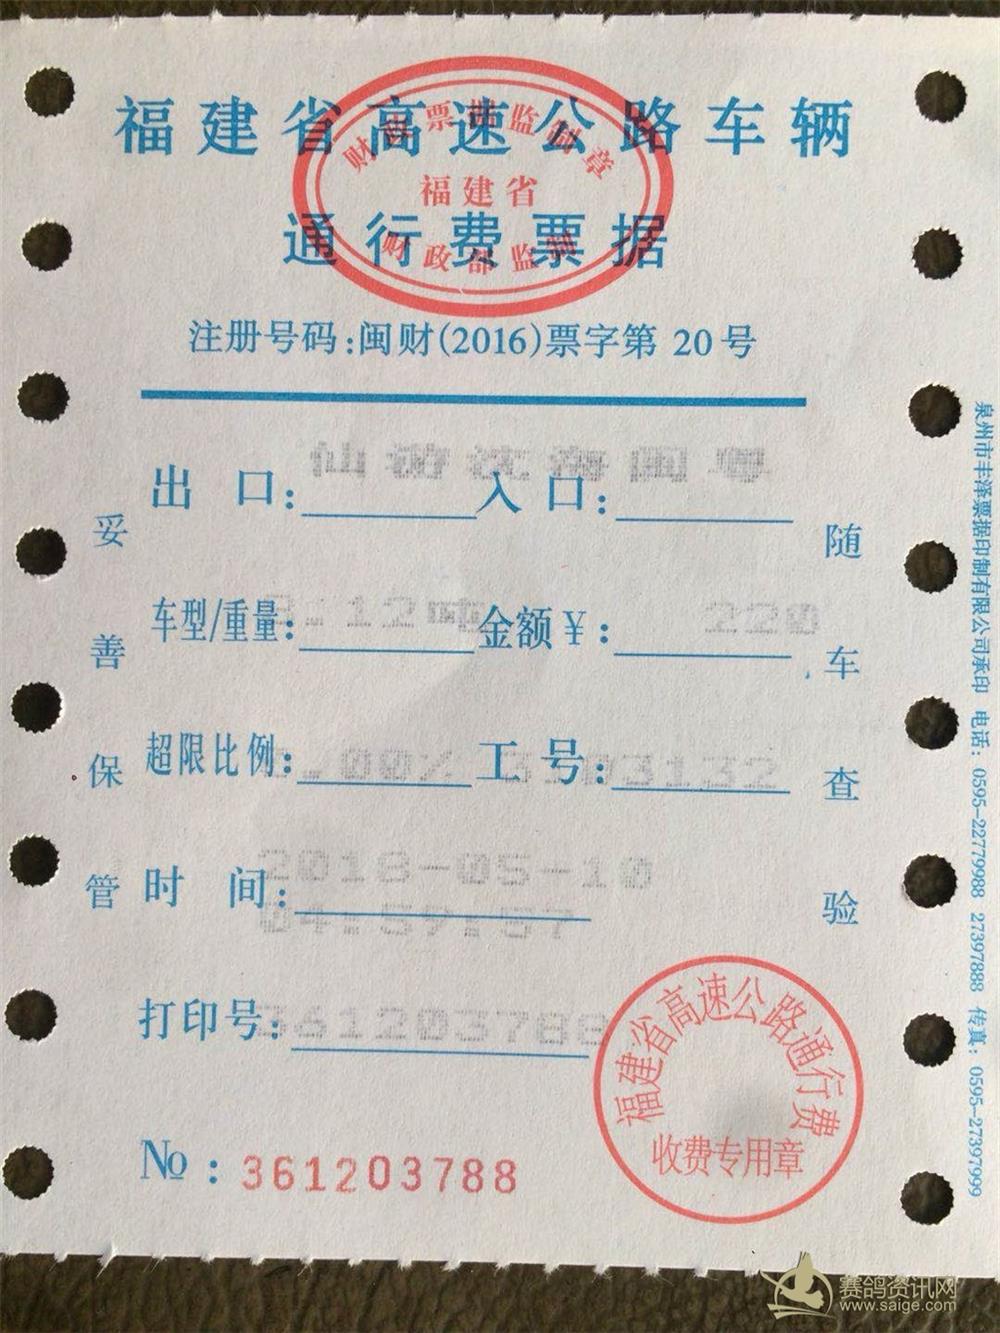 福建省高速公路车辆
通行费票据
福建省
注册号码:闽财(2016)票字第 20号
出 口: 仙游沈海闽粤 入口:
车型/重量: .12吨 金额¥: 220
超限比例: .00% 工号: 3132
时 间: 2018-05-10
04:59:57
打印号: 361203788
№: 361203788
妥善保管
随车查验
福建省高速公路通行费
收费专用章
泉州市丰泽票据印制有限公司承印 电话: 0595-22779988 27397888 传真: 0595-27397999
赛鸽资讯网
www.saige.com